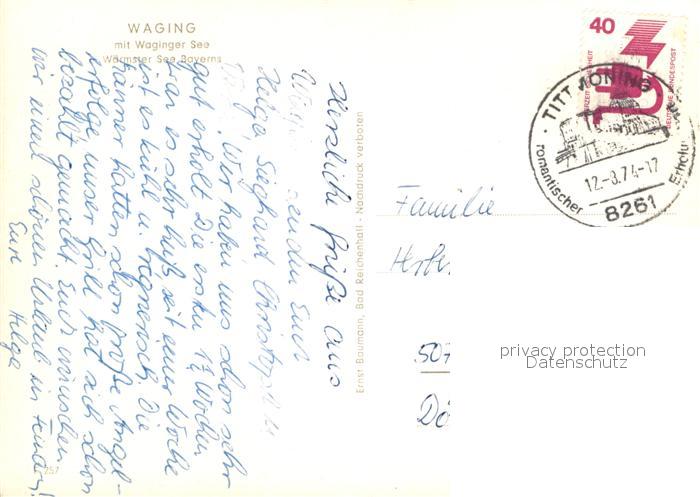 WAGING
mit Waginger See
Wärmster See Bayerns
Herzliche Grüße aus
senden Euch
Helga, Sieghart, Christoph
Wir haben uns schon sehr
gut erholt. Die ersten 1½ Wochen
war es sehr heiß, seit einer Woche
ist es kühl u. regnerisch. Die
Männer hatten schon große Angel-
erfolge, unser Grill hat sich schon
bezahlt gemacht. Euch wünschen
wir einen schönen Urlaub in
Eure Helga
257
Ernst Baumann, Bad Reichenhall · Nachdruck verboten
40
DEUTSCHE BUNDESPOST
TITTMONING
12.-8.74-17
romantischer
Erholu
8261
Familie
507
privacy protection
Datenschutz